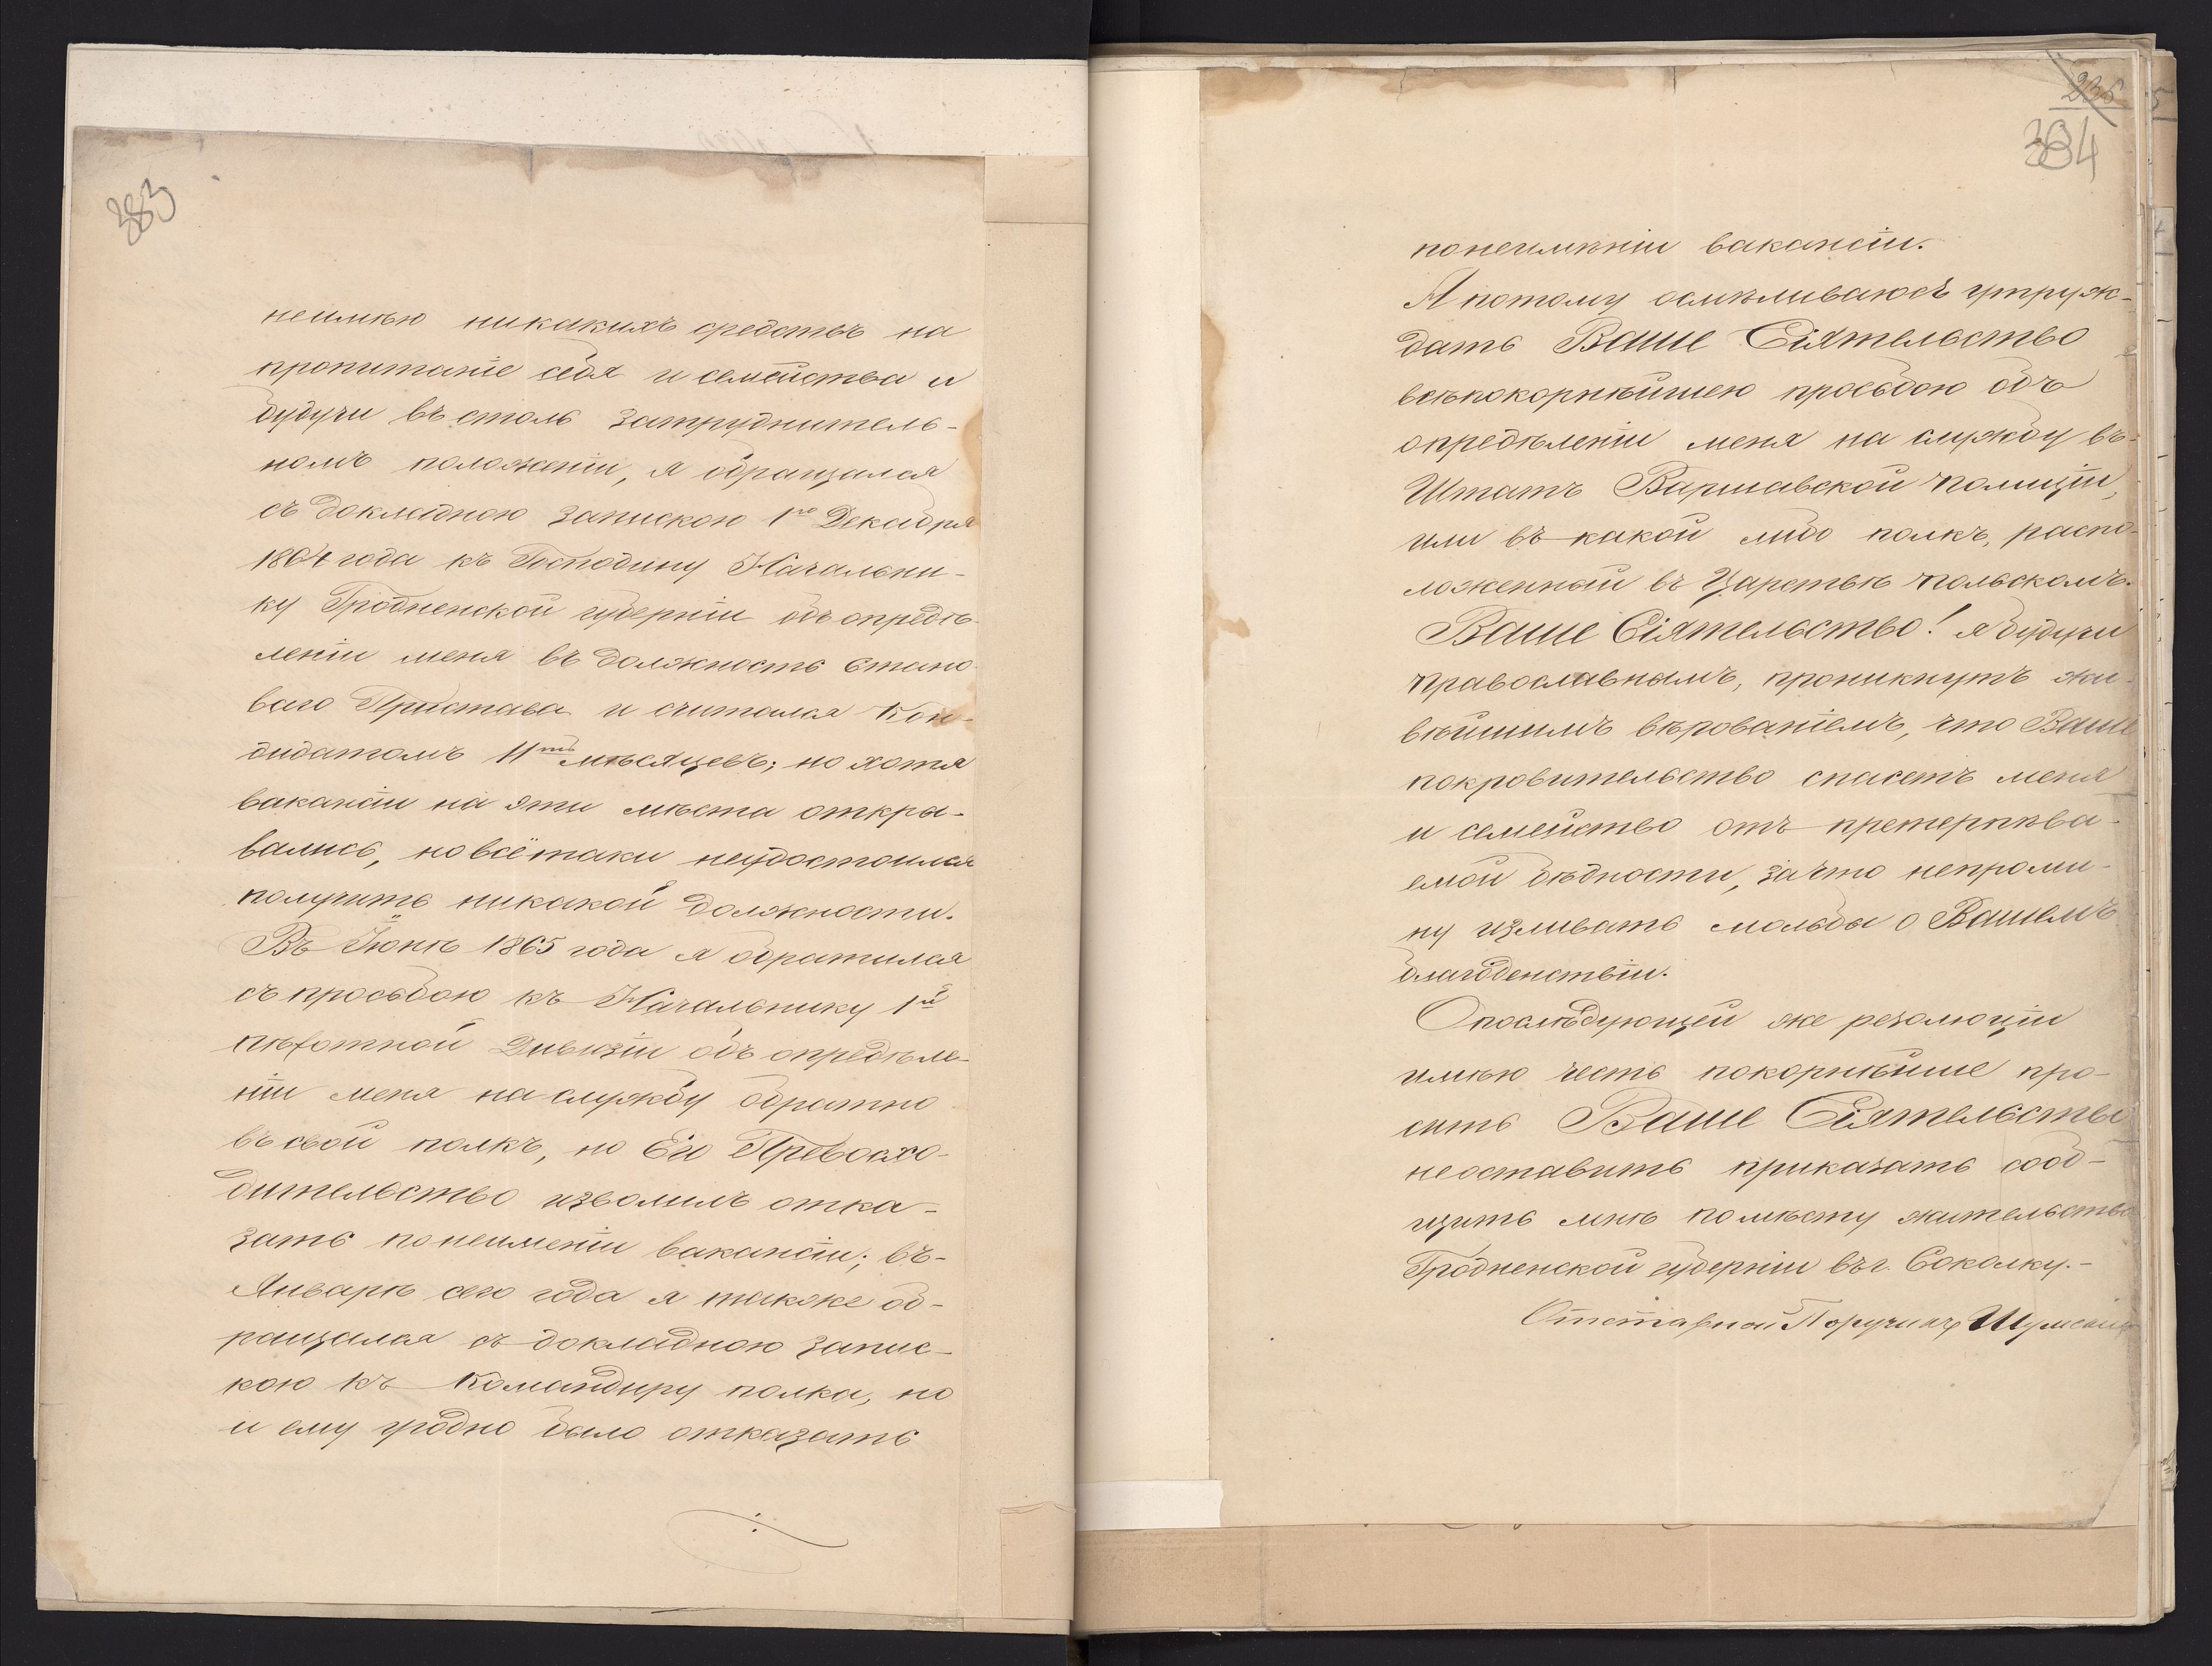 383
неимѣю никакихъ средствъ на
пропитаніе себя и семейства и
будучи въ столь затруднитель-
номъ положеніи, я обращался
съ докладною запискою 1го Декабря
1864 года къ Господину Начальни-
ку Гродненской губерніи объ опредѣ-
леніи меня въ должность Стано-
ваго Пристава и считался Кон-
дидатомъ 11ть мѣсяцевъ; но хотя
вакансіи на эти мѣста откры-
вались, но всётаки неудостоился
получить никакой должности.
Въ Іюнѣ 1865 года я обратился
съ просьбою къ Начальнику 1й
пѣхотной Дивизіи объ опредѣле-
ніи меня на службу обратно
въ свой полкъ, но Его Превосхо-
дительство изволилъ отка-
зать по неименіи вакансіи; въ-
Январѣ сего года я также об-
ращался съ докладною запис-
кою къ Командиру полка, но
и ему угодно было отказать
235
334
понеимѣніи вакансіи.
А потому осмѣливаюсь утруж-
дать Ваше Сіятельство
всѣпокорнѣйшею просьбою объ
опредѣленіи меня на службу въ-
Штатъ Варшавской полиціи,
или въ какой либо полкъ, распо-
ложенный въ Царствѣ польскомъ.
Ваше Сіятельство! я будучи
православнымъ, проникнутъ жи-
вѣйшимъ вѣрованіемъ, что Ваше
покровительство спасетъ меня
и семейство отъ претерпѣва-
емой бѣдности, зачто непроми-
ну изливать мольбы о Вашемъ
благоденствіи.
Опослѣдующей же резолюціи
имѣю честь покорнѣйше про-
сить Ваше Сіятельство
неоставить приказать сооб-
щить мнѣ по мѣсту жительства
Гродненской губерніи въ г. Соколку.-
Отставной Поручикъ Шумскій